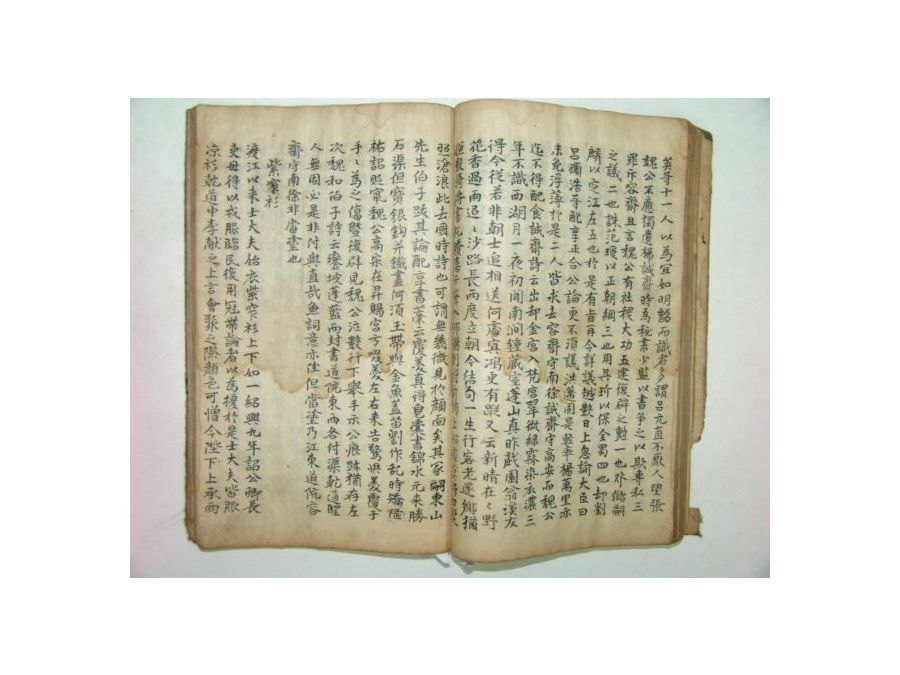 英等十一人以為宜如明詔而識者多謂呂元直不厭人望張
魏公不應獨遺楊誠齋時為秘書少監以書爭之以欺專私三
罪斥容齋且言魏公有社稷大功五建復辟之勳一也發儲嗣
之議二也誅范瓊以正朝綱三也用吳玠以保全蜀四也却劉
麟以定江左五也於是有旨再令詳議越數日上忽諭大臣曰
呂頤浩等配享正合公論更不須議洪邁固是輕率楊萬里亦
未免浮薄於是二人皆求去容齋守南徐誠齋守高安而魏公
迄不得配食誠齋詩云出却金宮入梵宮翠微綠霧染衣濃三
年不識西湖月一夜初聞南澗鍾藏室蓬山真昨我園翁溪友
得今從若非朝士追相送何處冥鴻更有蹤又云新晴在在野
花香過雨迢迢沙路長兩度立朝今結局一生行客老還鄉猶
滄浪此去國時詩也可謂無幾微見於顏面矣其家嗣東山
先生伯子跋其論配享書藁云覆羹真得皂囊書錦水元來勝
石渠但寶銀鈎并鐵畫何須玉帶與金魚蓋苗劉作亂時矯隆
祐詔貶竄魏公高宗在昇賜宮方啜羹左右來告驚惧羹覆于
手手為之傷暨復辟見魏公泣數行下舉手示公痕跡猶存左
次魏和伯子詩云鑾坡蓬蓽兩封書道院東西各付渠乾道聖
人無固必是非付與直哉魚詞意亦佳但當塗乃江東道院容
齋守南徐非當塗也
紫窄衫
渡江以來士大夫始衣紫窄衫上下如一紹興九年詔公卿長
吏毋得以戎服臨民復用冠帶論者以為擾於是士大夫皆服
凉衫乾道中李獻之上言會聚之際顏色可憎今陛下上承西